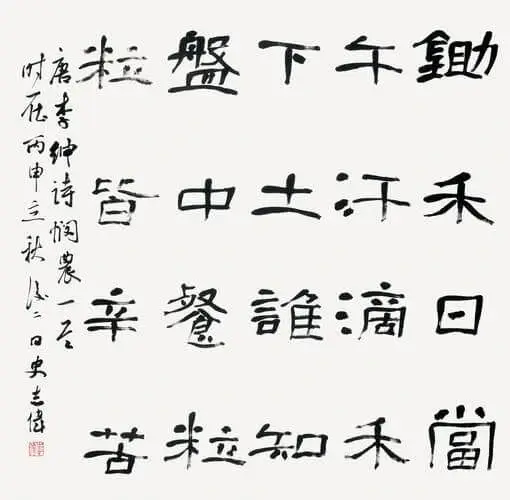 鋤禾日當
午汗滴禾
下土誰知
盤中餐粒
粒皆辛苦
唐李绅诗悯農一首
时在丙申立秋後二日史志偉